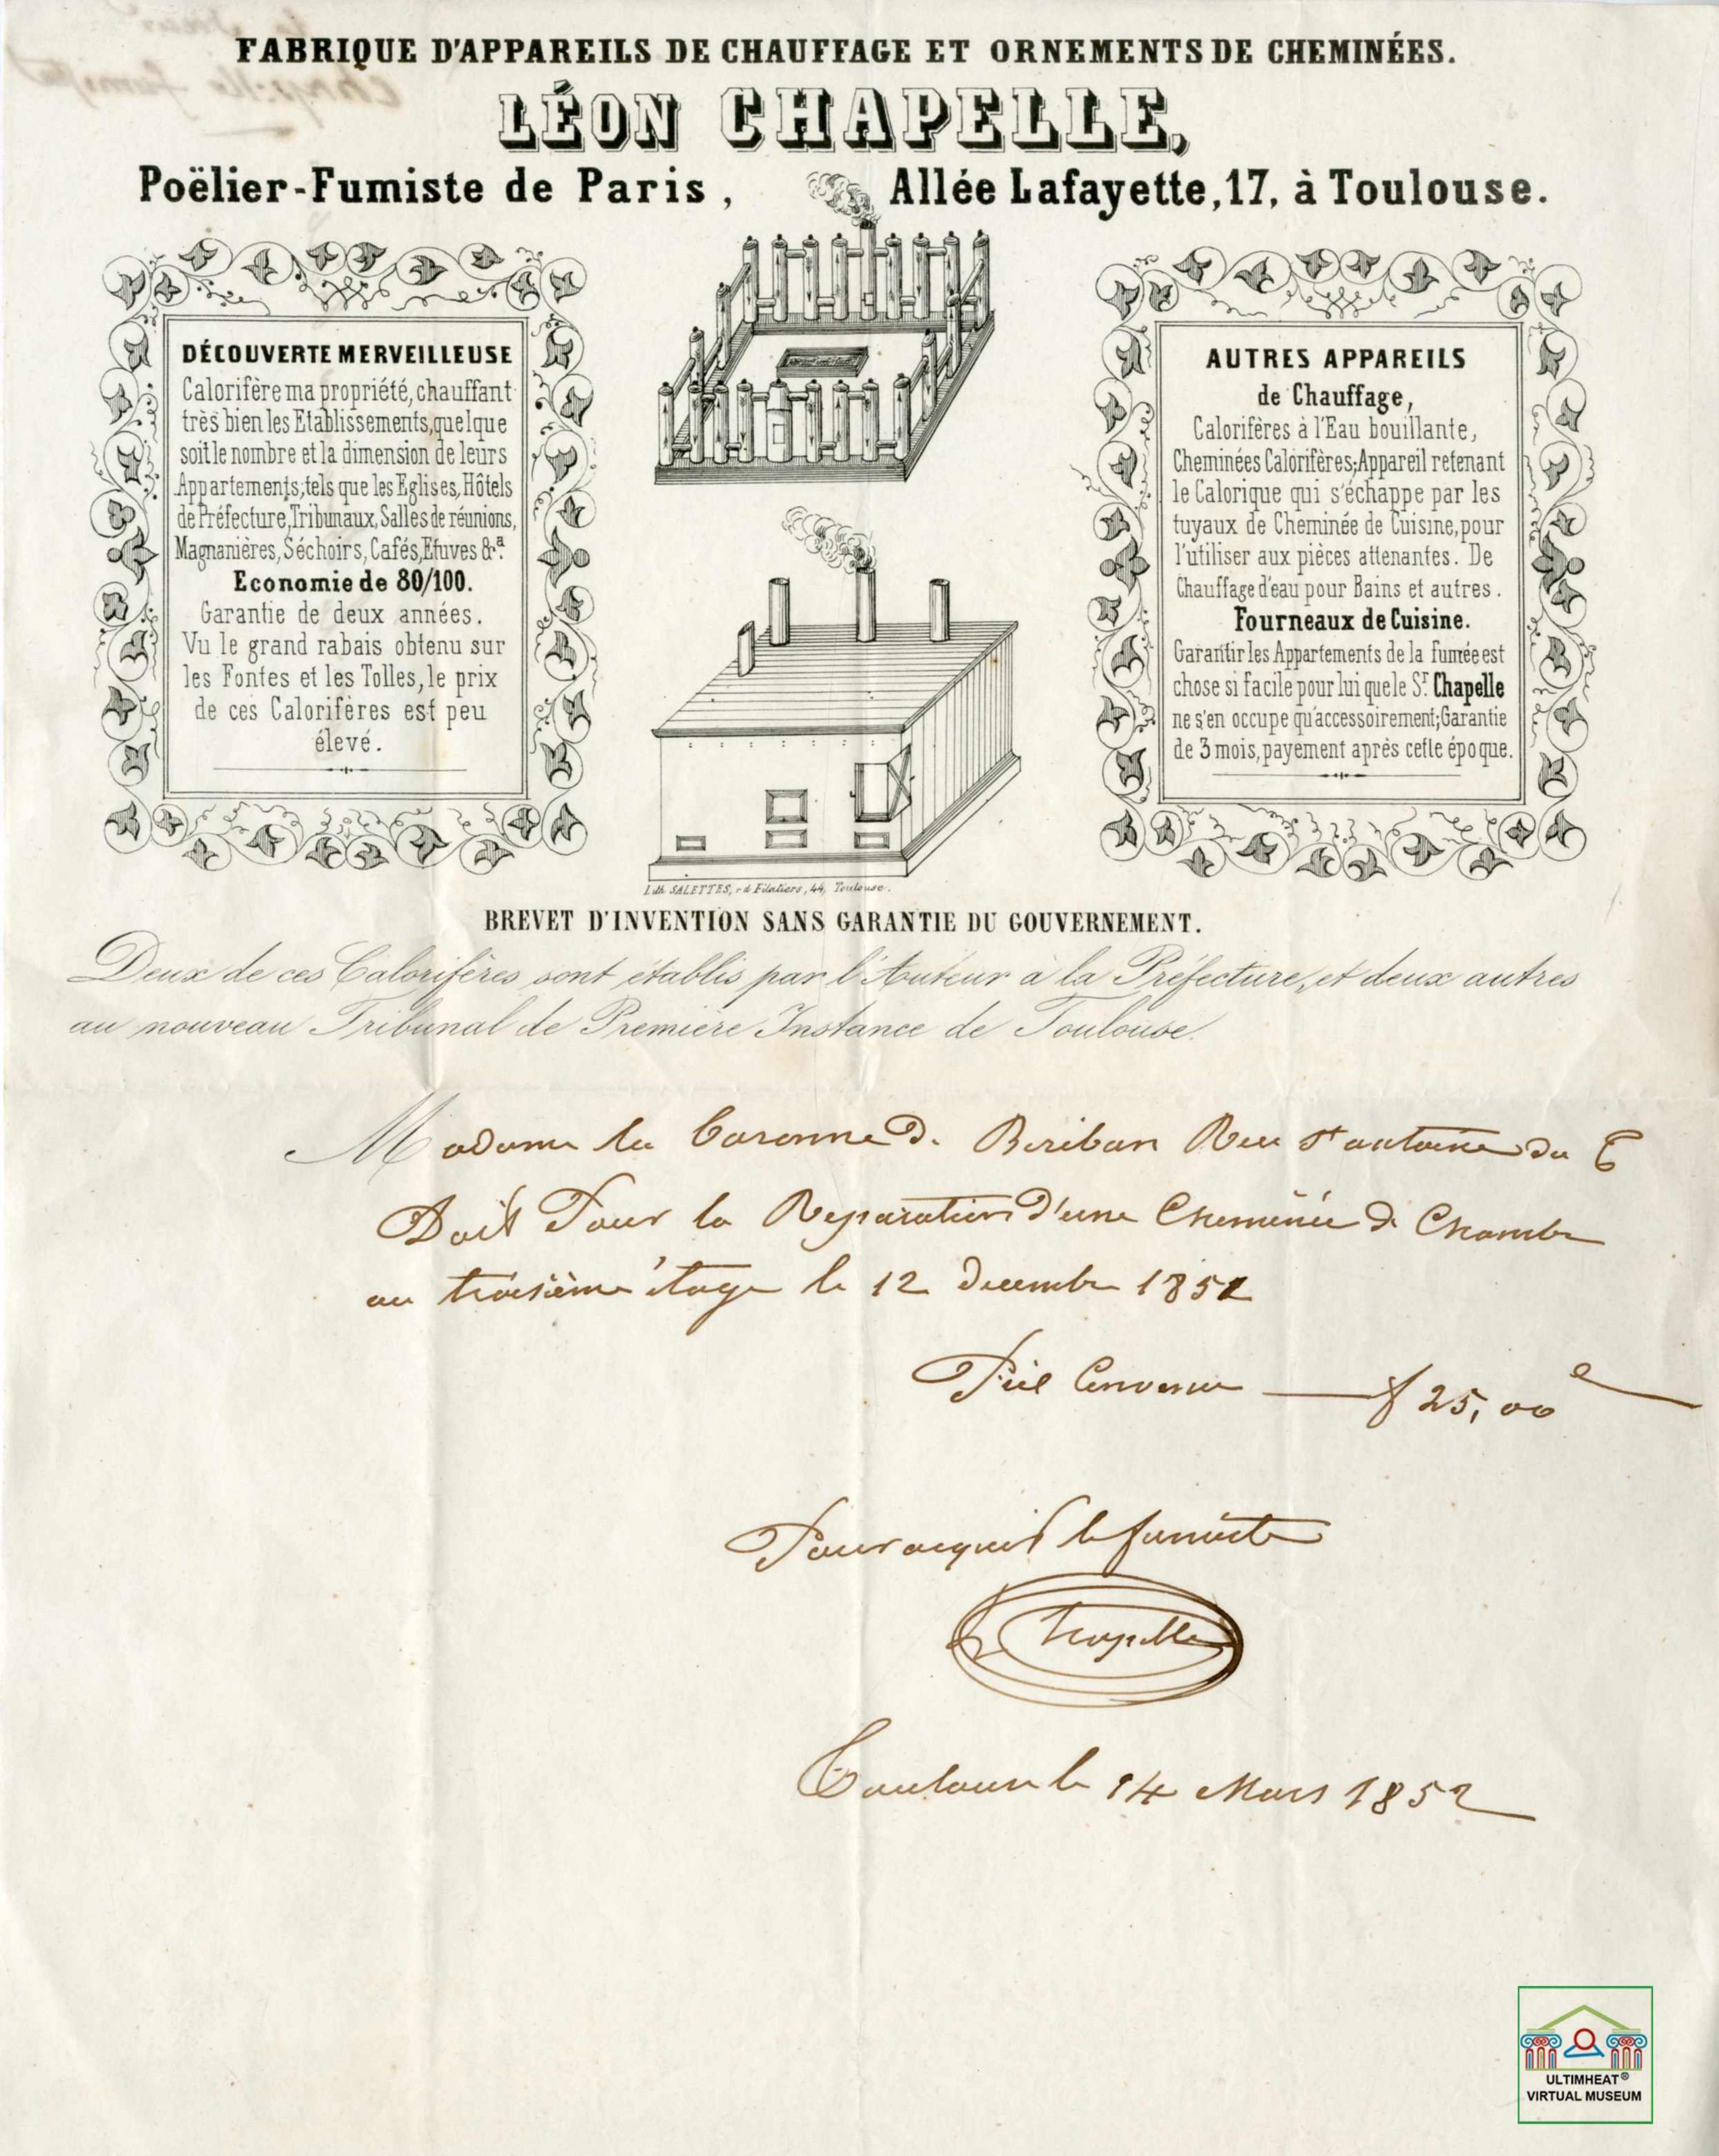 FABRIQUE D'APPAREILS DE CHAUFFAGE ET ORNEMENTS DE CHEMINÉES.
LÉON CHAPELLE,
Poëlier-Fumiste de Paris, Allée Lafayette, 17, à Toulouse.
DÉCOUVERTE MERVEILLEUSE
Calorifère ma propriété, chauffant
très bien les Etablissements, quelque
soit le nombre et la dimension de leurs
Appartements; tels que les Eglises, Hôtels
de Préfecture, Tribunaux, Salles de réunions,
Magnanières, Séchoirs, Cafés, Etuves &ª.
Economie de 80/100.
Garantie de deux années.
Vu le grand rabais obtenu sur
les Fontes et les Tolles, le prix
de ces Calorifères est peu
élevé.
AUTRES APPAREILS
de Chauffage,
Calorifères à l'Eau bouillante,
Cheminées Calorifères; Appareil retenant
le Calorique qui s'échappe par les
tuyaux de Cheminée de Cuisine, pour
l'utiliser aux pièces attenantes. De
Chauffage d'eau pour Bains et autres.
Fourneaux de Cuisine.
Garantir les Appartements de la fumée est
chose si facile pour lui que le Sr. Chapelle
ne s'en occupe qu'accessoirement; Garantie
de 3 mois, payement après cette époque.
Lith. SALETTES, r. d. Filatiers, 44, Toulouse.
BREVET D'INVENTION SANS GARANTIE DU GOUVERNEMENT.
Deux de ces Calorifères sont établis par l'Auteur à la Préfecture, et deux autres
au nouveau Tribunal de Première Instance de Toulouse.
Madame la Baronne D. Rue St antoine du T
Doit Pour la Reparation D'une Cheminée De Chambre
au troisième étage le 12 Decembre 1852
Prix Convenu f 25,00 c
Pour acquit le fumiste
Chapelle
Toulouse le 14 Mars 1852
ULTIMHEAT®
VIRTUAL MUSEUM